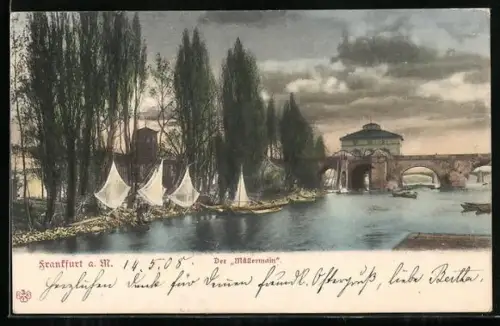 Frankfurt a. M. 14.5.05. Der „Müllermain“.
Herzlichen Dank für Deinen freundl. Ostergruß, liebe Bertha.